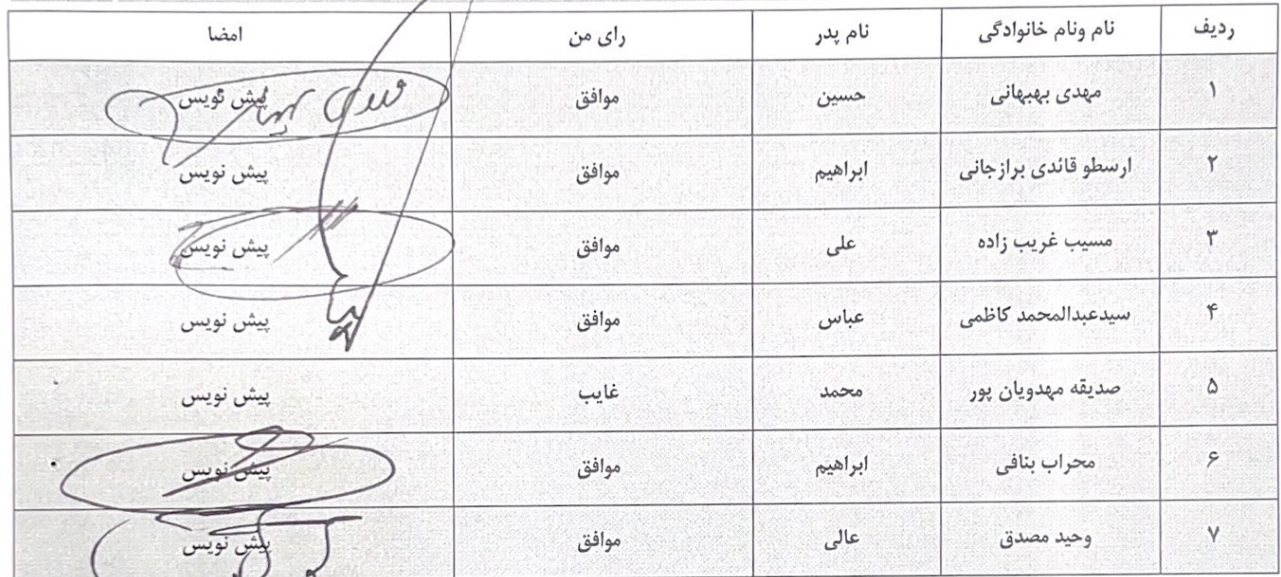 ردیف نام ونام خانوادگی نام پدر رای من امضا
۱ مهدی بهبهانی حسین موافق پیش نویس
۲ ارسطو قائدی برازجانی ابراهیم موافق پیش نویس
۳ مسیب غریب زاده علی موافق پیش نویس
۴ سیدعبدالمحمد کاظمی عباس موافق پیش نویس
۵ صدیقه مهدویان پور محمد غایب پیش نویس
۶ محراب بنافی ابراهیم موافق پیش نویس
۷ وحید مصدق عالی موافق پیش نویس